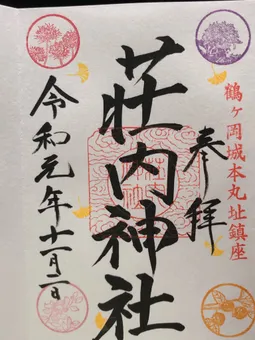 鶴ヶ岡城本丸址鎮座
奉拝
荘内神社
令和元年十一月二日